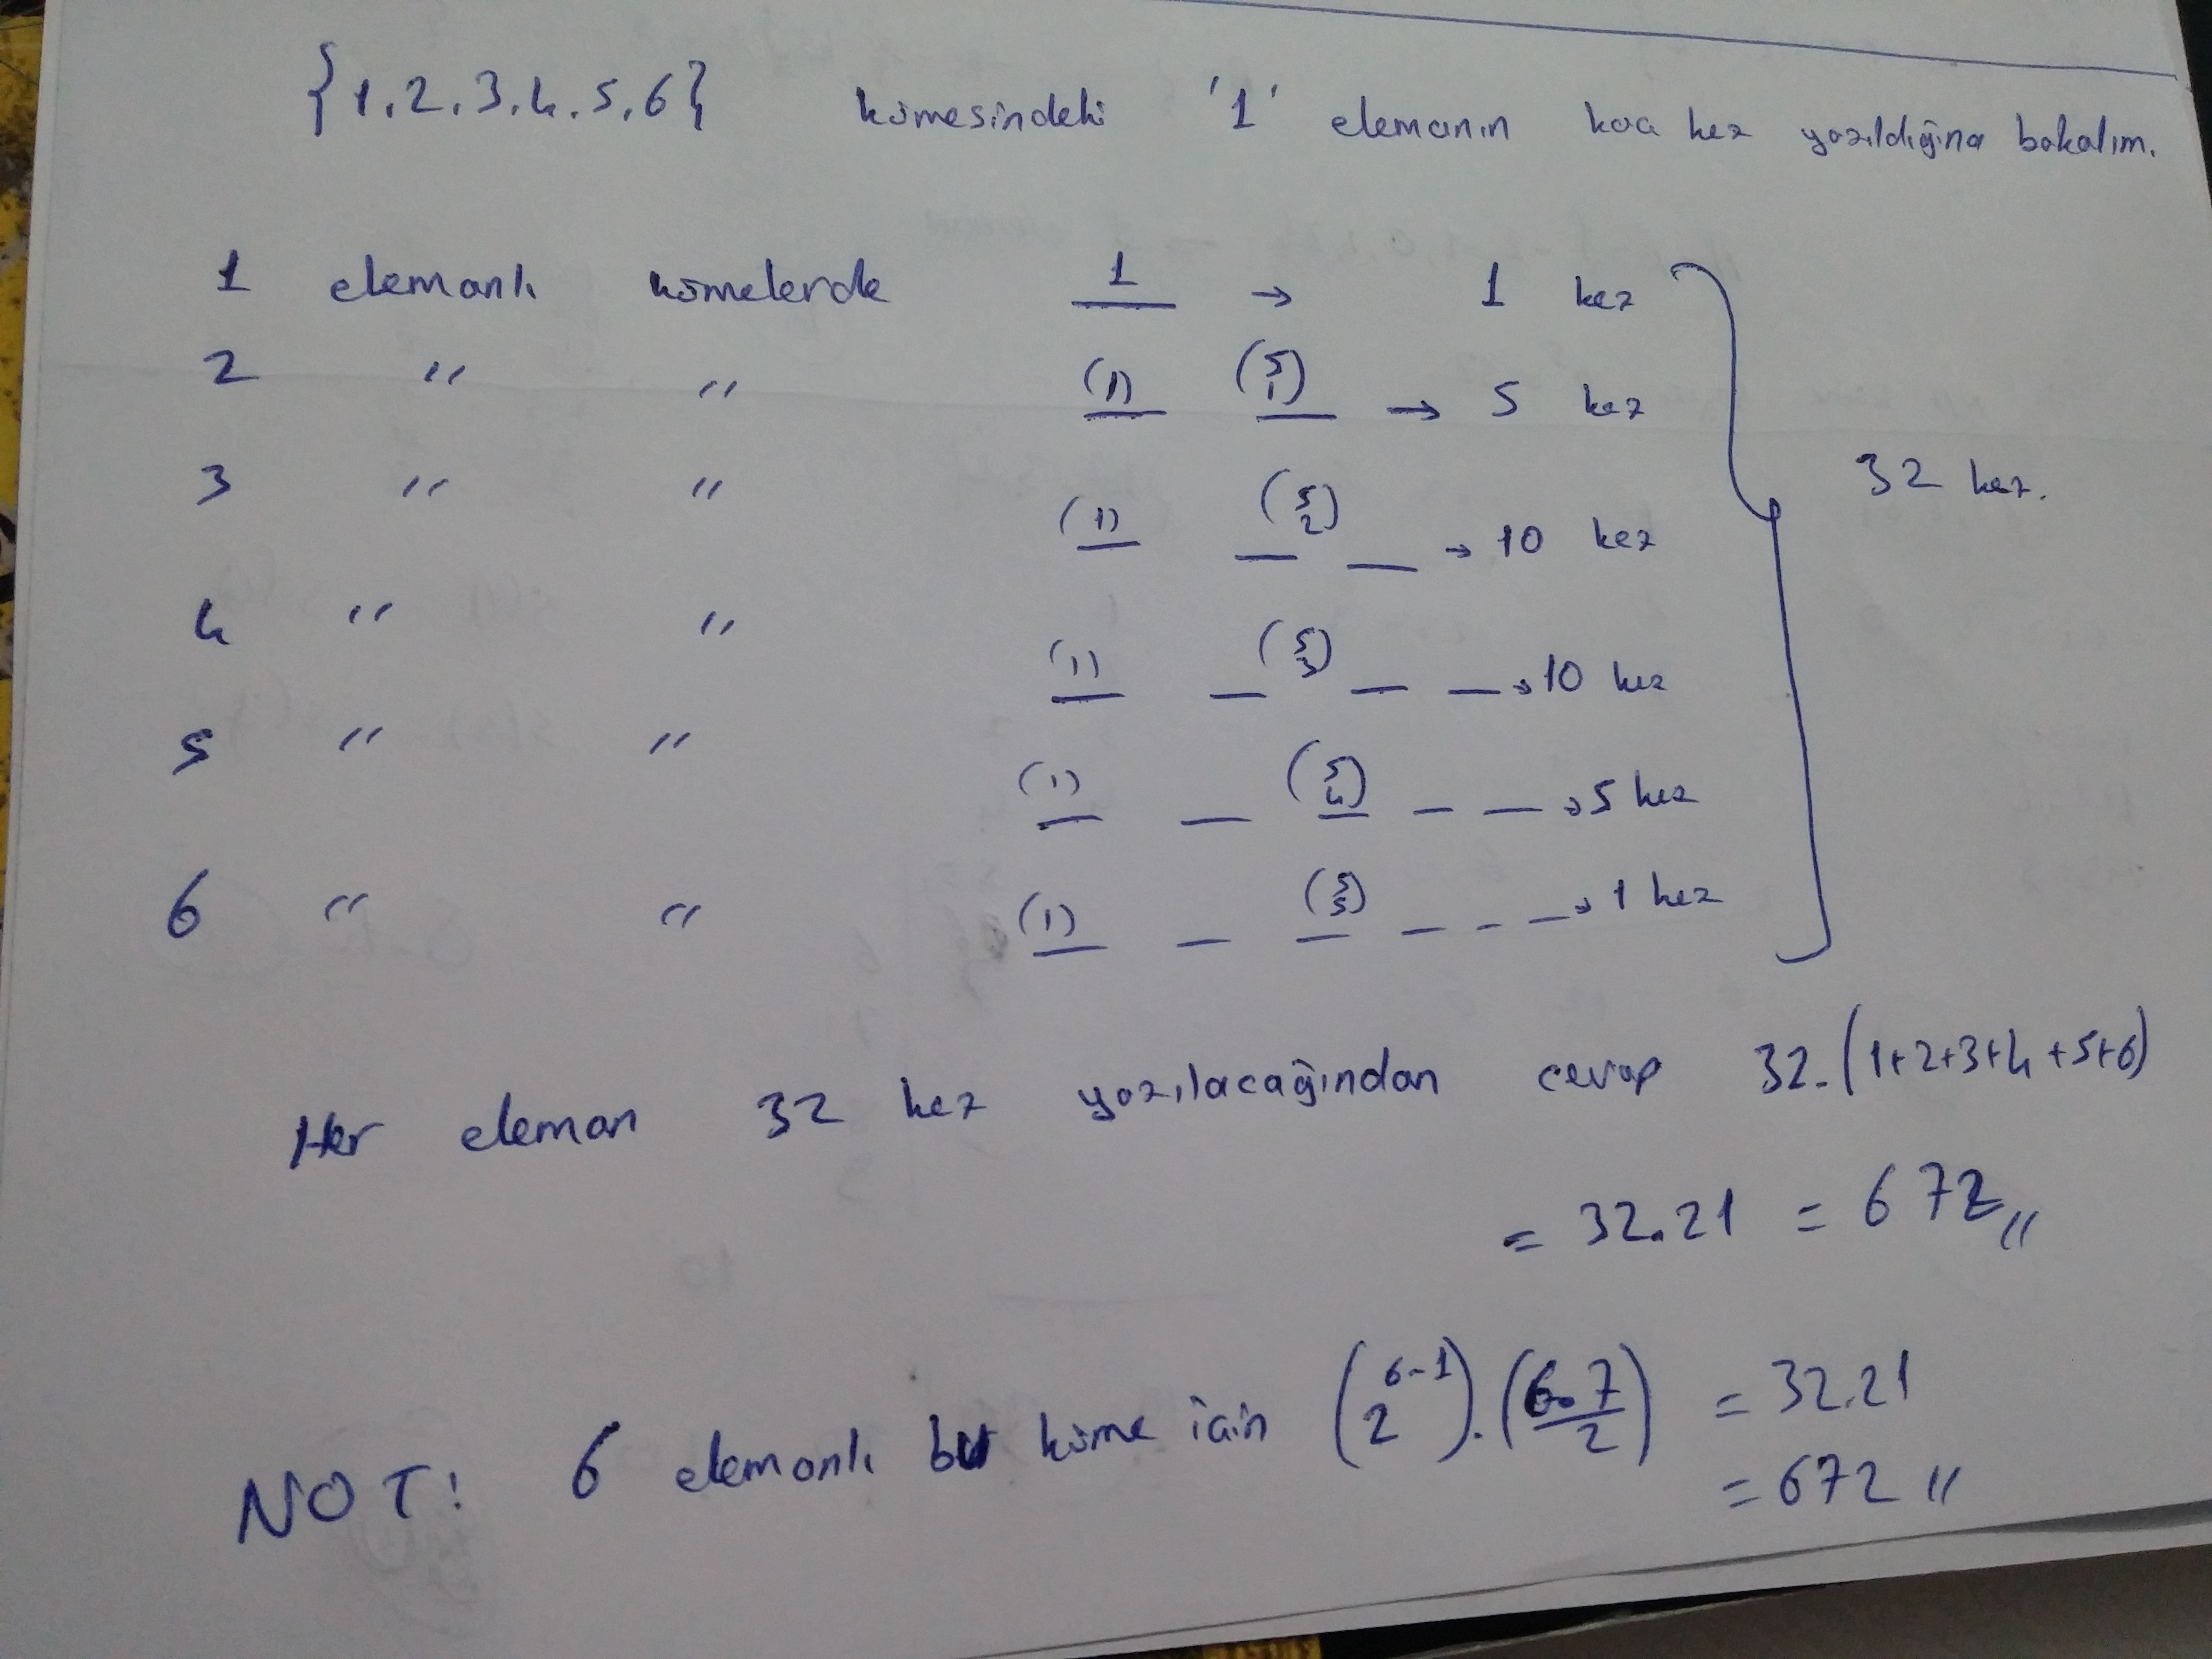 {1,2,3,4,5,6} kümesindeki '1' elemanın kaç kez yazıldığına bakalım.
1 elemanlı kümelerde 1 → 1 kez
2 " " (1) (5 1) → 5 kez
3 " " (1) (5 2) → 10 kez
4 " " (1) (5 3) → 10 kez
5 " " (1) (5 4) → 5 kez
6 " " (1) (5 5) → 1 kez
32 kez.
Her eleman 32 kez yazılacağından cevap 32.(1+2+3+4+5+6)
= 32.21 = 672//
NOT: 6 elemanlı bu küme için (2^6-1).(6.7/2) = 32.21
= 672 //